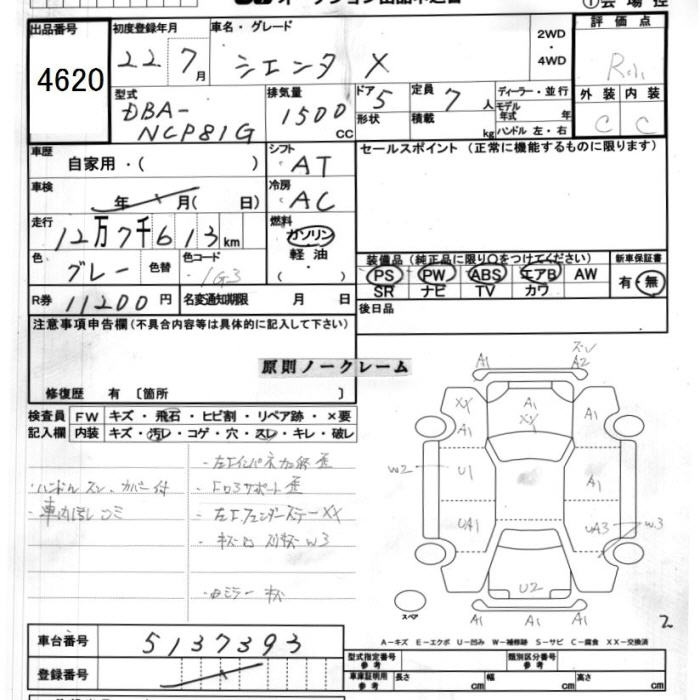 出品番号
4620
初度登録年月
22 7月
車名・グレード
シエンタ X
2WD
・
4WD
評価点
外装 内装
C C
型式
DBA-
NCP81G
排気量
1500
CC
ドア
5
形状
定員
7人
積載
kg
ディーラー・並行
モデル
年式 年
ハンドル 左・右
車歴
自家用・( )
シフト
AT
セールスポイント (正常に機能するものに限ります)
車検
年 月( 日)
冷房
AC
走行
12万7千613km
燃料
ガソリン
軽油
・
( )
色
グレー
色替
色コード
1G3
装備品 (純正品に限り○をつけてください)
PS PW ABS エアB AW
SR ナビ TV カワ
新車保証書
有・無
R券 11200円
名変通知期限 月 日
後日品
注意事項申告欄 (不具合内容等は具体的に記入して下さい)
原則ノークレーム
修復歴 有 〔箇所 〕
検査員
記入欄
FW キズ・飛石・ヒビ割・リペア跡・×要
内装 キズ・汚レ・コゲ・穴・スレ・キレ・破レ
・ハンドルスレ、カバー付
A1
A2
A1
XX
XX
A1
A1
W2
U1
A1
UA1
UA3
W3
U2
A1 A1 A1
スペア
2
A-キズ E-エクボ U-凹み W-補修跡 S-サビ C-腐食 XX-交換済
車台番号
5137393
登録番号
型式指定番号
参考
類別区分番号
参考
車庫証明用
参考
長さ cm
幅 cm
高さ cm